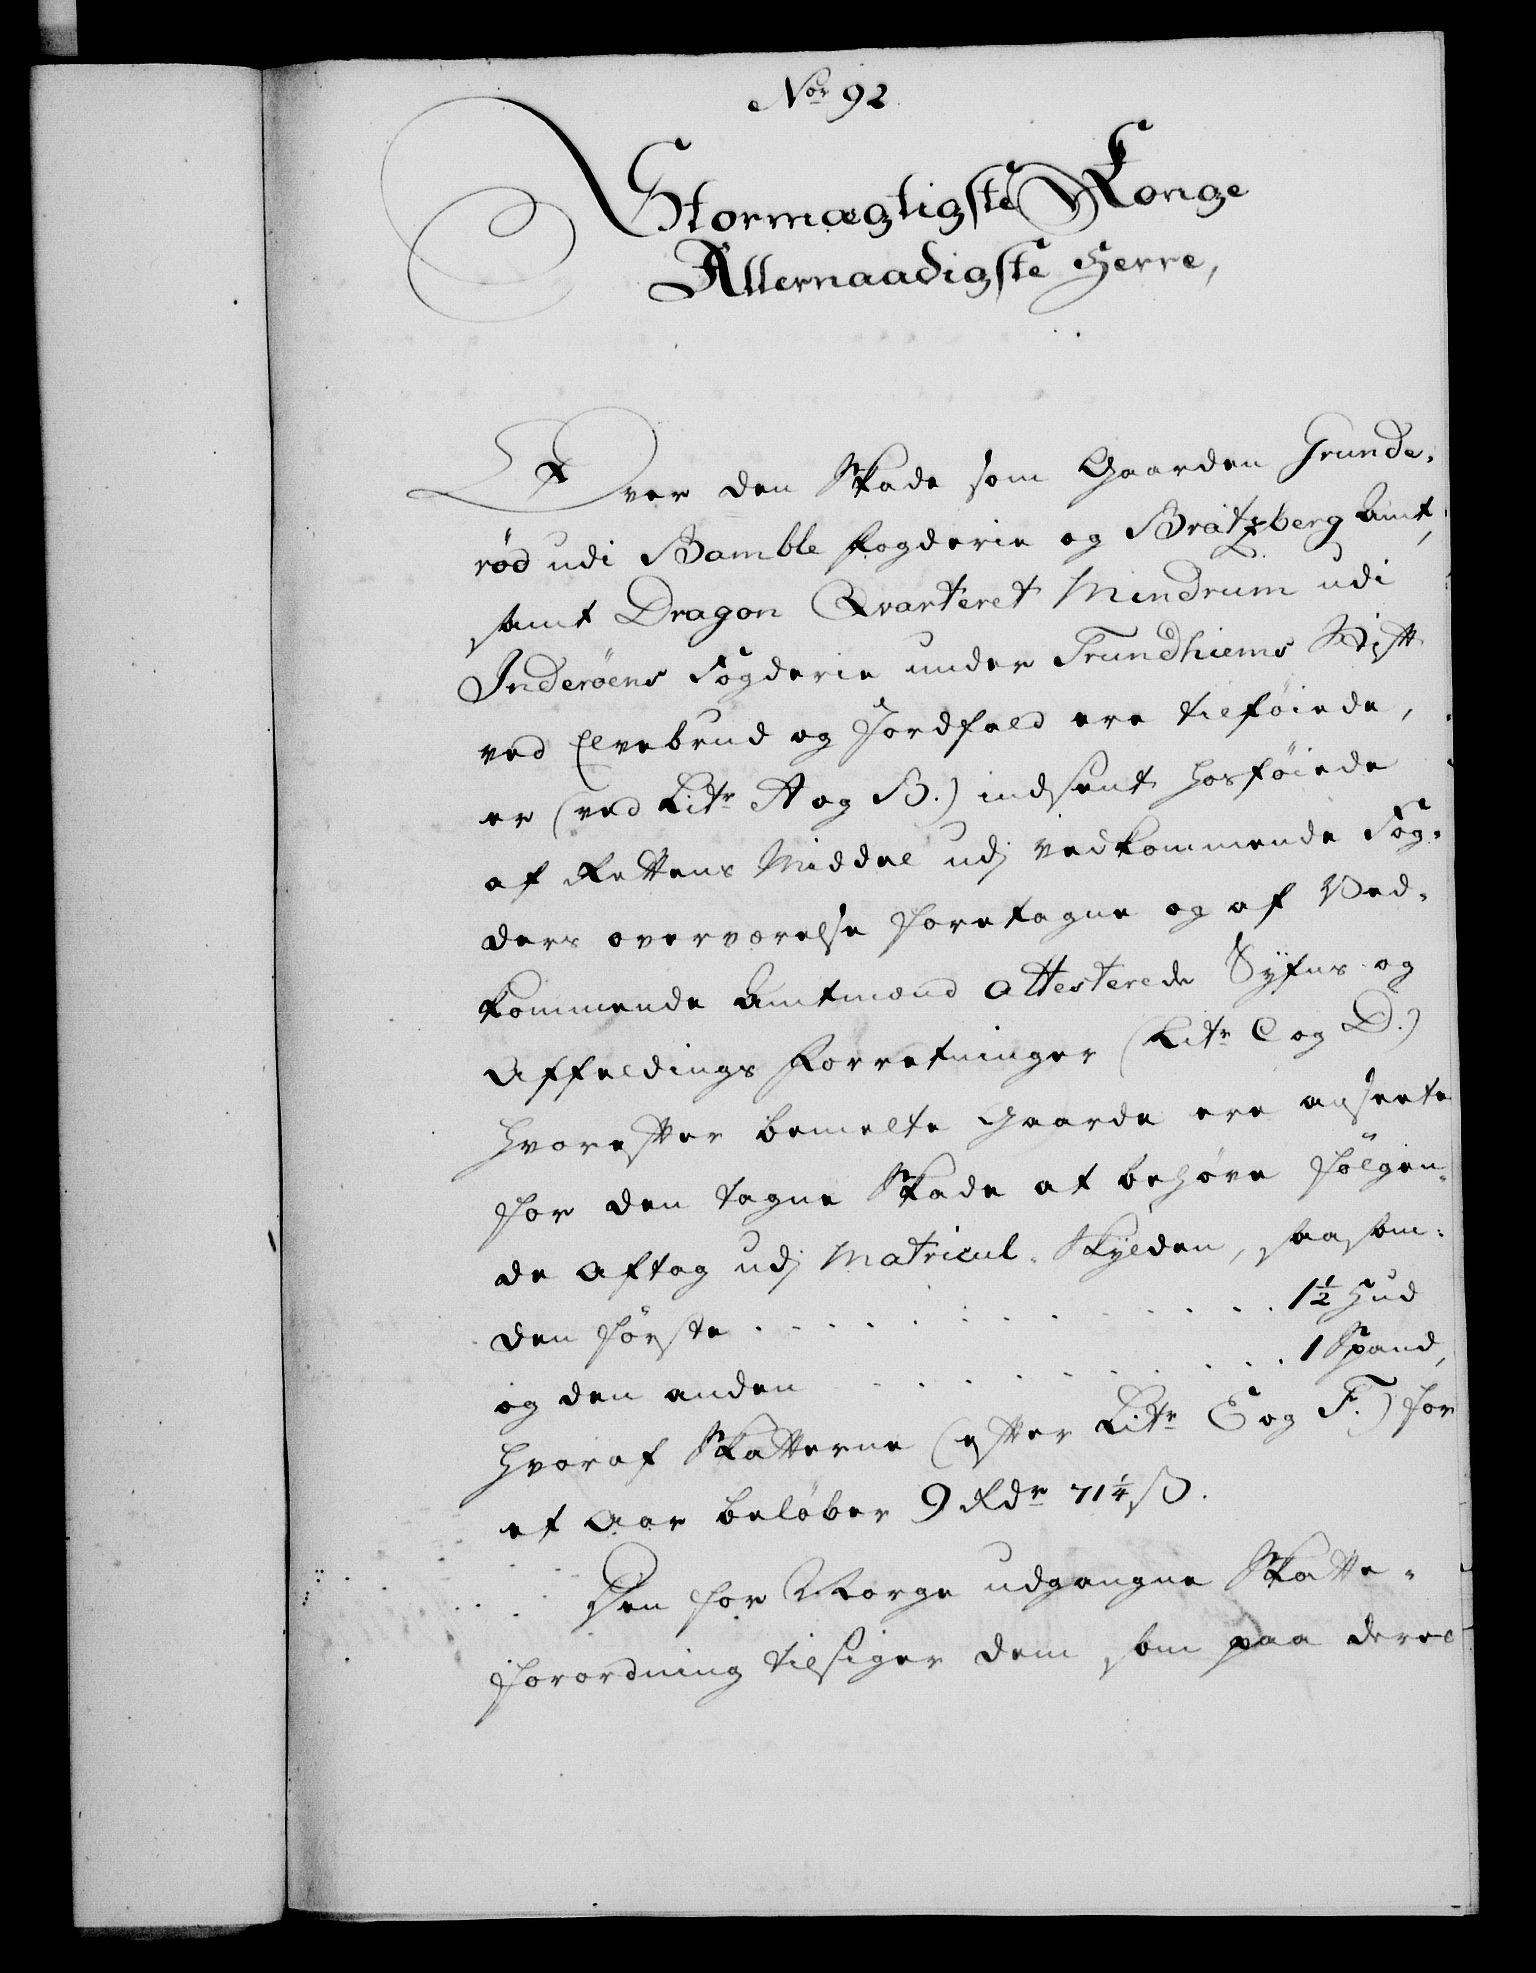 No͞r 92
Stormægtigste Konge
Allernaadigste Herre,
Over den Skade som Gaarden Grunde-
rød udi Bamble Fogderie og Bratzberg Amt,
samt Dragon Qvarteret Mindrum udi
Inderöens Fogderie under Trundhiems Stift
ved Elvebrud og Jordfald ere tilföiede,
er (ved Litr A og B.) indsent hosföiede
af Rettens Middel udj vedkommende Fog-
ders overværelse foretagne og af Ved-
kommende Amtmænd attesterede Syfns og
Affældings Forretninger (Litr C og D.)
hvorefter bemelte Gaarde ere anseete
for den tagne Skade at behøve fölgen-
de Aftag udj Matricul-Skylden, saasom:
den förste . . . . . . . . . . 1½ Hud
og den anden . . . . . . . . . 1 Spand,
hvoraf Skatterne (efter Litr E og F.) for
et Aar belöber 9 Rdr 71¼ ß.
Den for Norge udgangne Skatte-
forordning tilsiger dem som paa deres